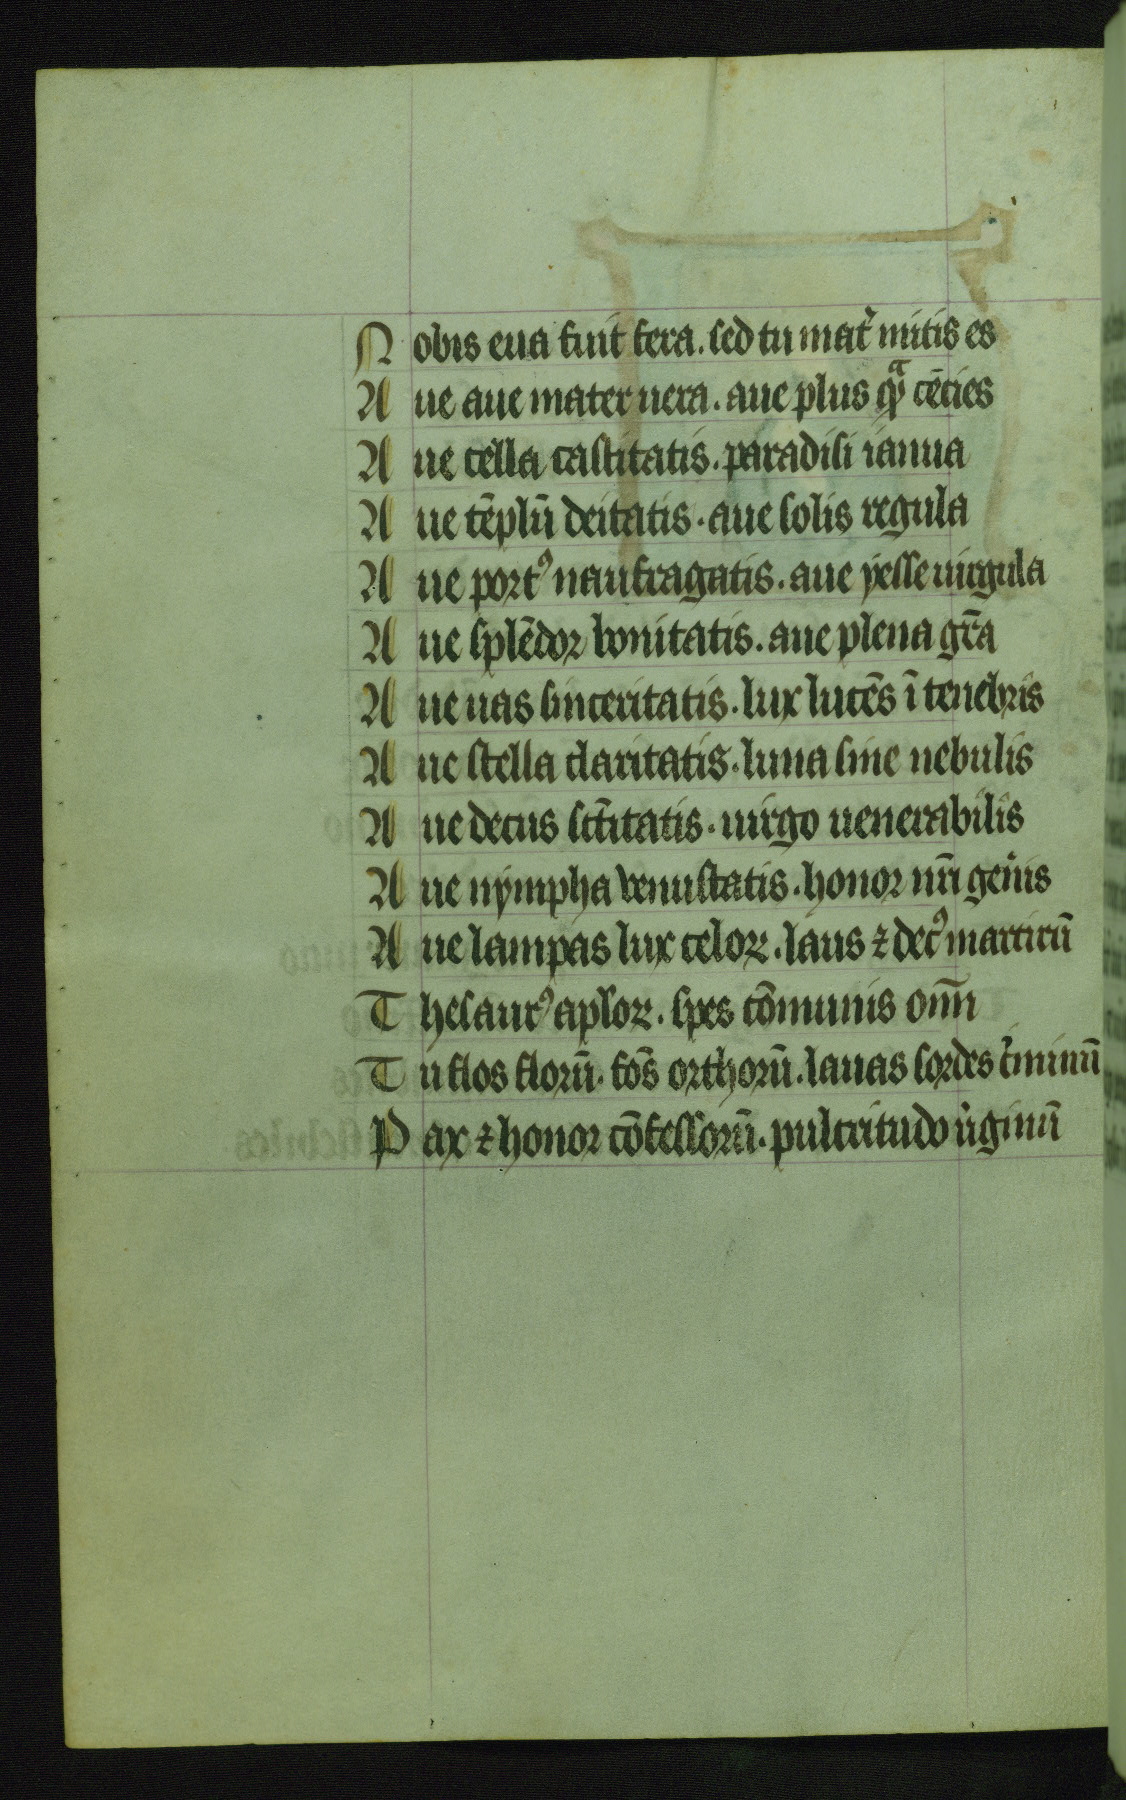 Nobis eua fuit fera. sed tu mat̓ mitis es
Aue aue mater uera. aue plus qͣ̃ cẽcies
Aue cella castitatis. paradisi ianua
Aue tẽplũ deitatis. aue solis regula
Aue portꝰ naufragatis. aue yesse uirgula
Aue splẽdor bonitatis. aue plena gr̃a
Aue uas sinceritatis. lux lucẽs ĩ tenebris
Aue stella claritatis. luna sine nebulis
Aue decus sc̃titatis. uirgo uenerabilis
Aue nympha venustatis. honor nr̃i gen̓is
Aue lampas lux celoꝝ. laus ⁊ decꝰ martirũ
Thesaurꝰ aploꝝ. spes cõmunis om̃
Tu flos florũ. fõs orthorũ. lauas sordes c̓minũ
Pax ⁊ honor cõfessorũ. pulcritudo u̓ginũ